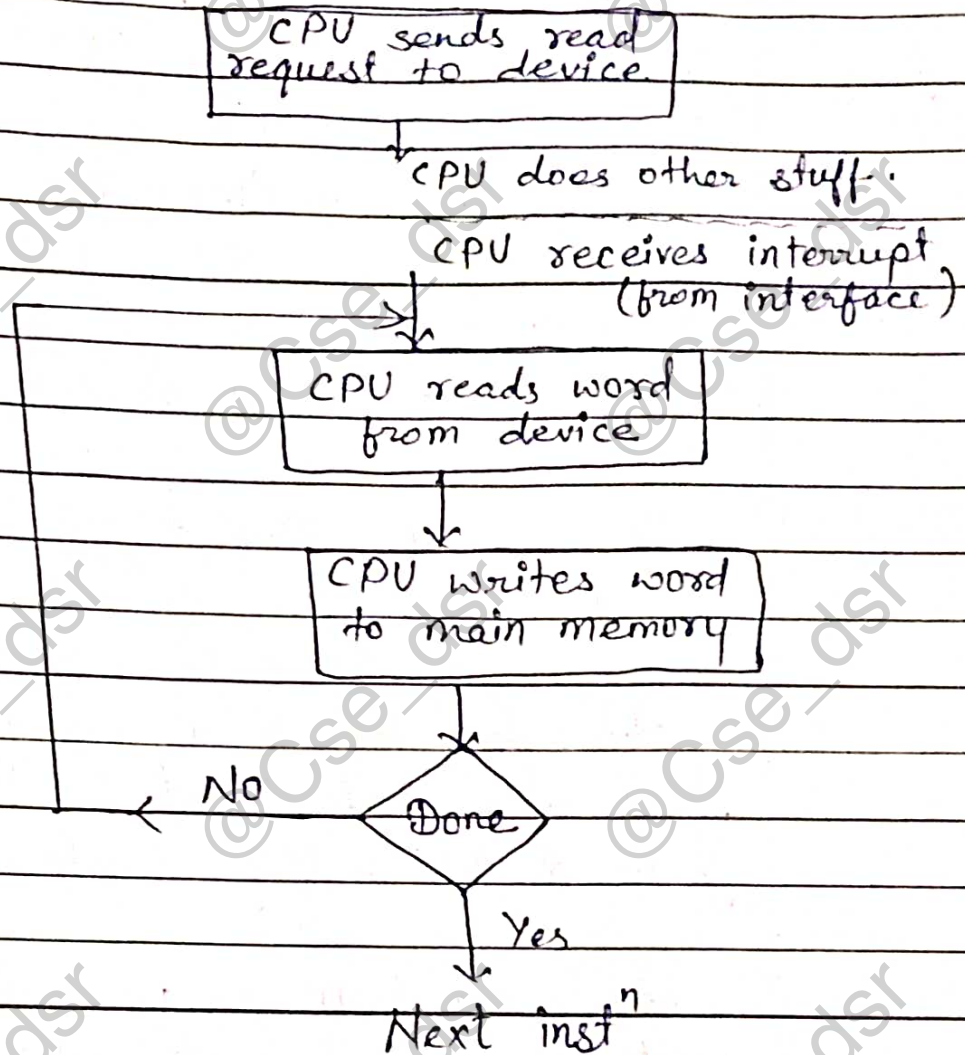 CPU sends read
request to device
CPU does other stuff..
CPU receives interrupt
(from interface)
CPU reads word
from device
CPU writes word
to main memory
No
Done
Yes
Next instⁿ
@Cse_dsr